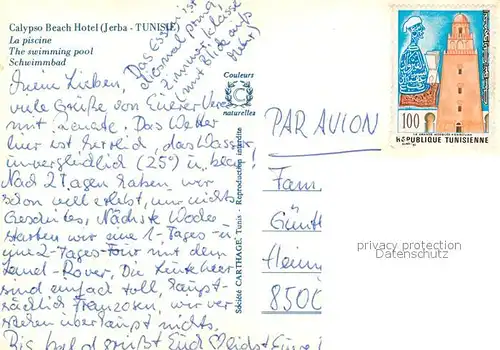 Calypso Beach Hotel (Jerba - TUNISIE)
La piscine
The swimming pool
Schwimmbad
Das Essen ist
diesmal prima,
Zimmer Klasse
(mit Blick aufs
Meer)
Couleurs
naturelles
Meine Lieben,
viele Grüße von Euerer
mit Renate. Das Wetter
hier ist herrlich, das Wasser
unvergleichlich (25°) u. blau!
Nach 2 Tagen haben wir
schon viel erlebt, nur nichts
Gescheites, Nächste Woche
starten wir eine 1-Tages- u.
eine 2-Tages-Tour mit dem
Land-Rover. Die Leute hier
sind einfach toll, haupt-
sächlich Franzosen, wir ver-
stehen überhaupt nichts.
Bis bald grüßt Euch
Société CARTHAGE Tunis - Reproduction interdite
100
REPUBLIQUE TUNISIENNE
PAR AVION
Fam.
Günth
8500
privacy protection
Datenschutz